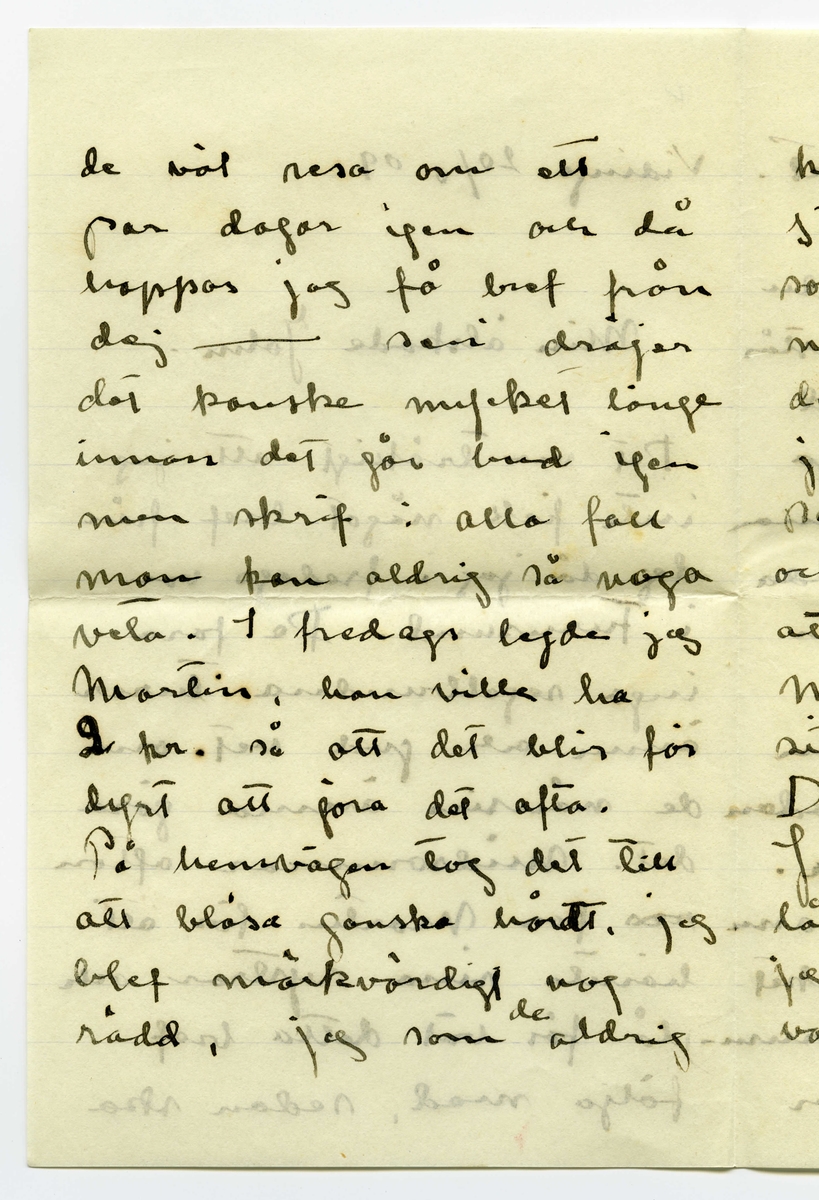 de väl resa om ett
par dagar igen och då
hoppas jag få bref från
dej — sen dråjer
dät kanske mycket länge
innan det går bud igen
men skrif i alla fall
man kan aldrig så noga
veta. I fredags legde jag
Martin, han ville ha
2 kr. så att det blir för
dyrt att jöra det ofta.
På hemvägen tog det till
att blåsa ganska hårdt, jag
blef märkvärdigt nog
rädd, jag som de aldrig